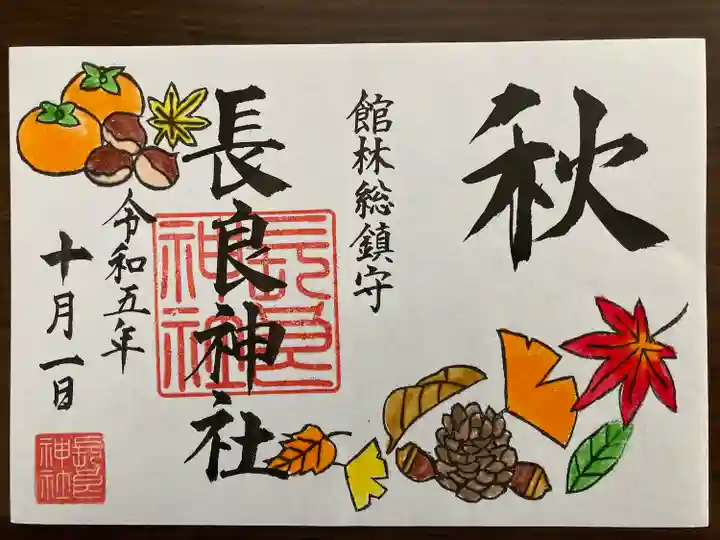 秋
館林総鎮守
長良神社
令和五年
十月一日
長良神社
長良神社